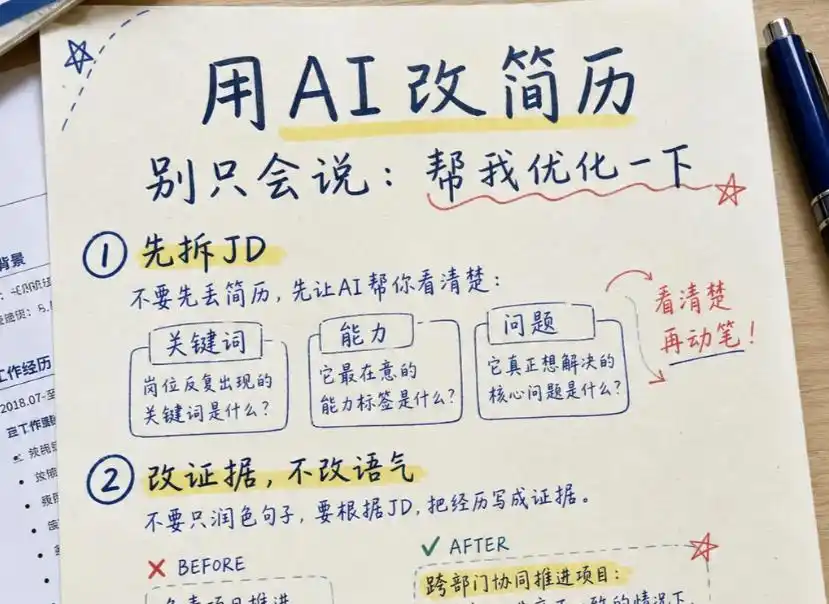 用AI改简历
别只会说：帮我优化一下
① 先拆JD
不要先丢简历，先让AI帮你看清楚：
关键词
岗位反复出现的
关键词是什么？
能力
它最在意的
能力标签是什么？
问题
它真正想解决的
核心问题是什么？
看清楚
再动笔！
② 改证据，不改语气
不要只润色句子，要根据JD，把经历写成证据。
✗ BEFORE
✓ AFTER
跨部门协同推进项目：
背景
工作经历
2018.07-至